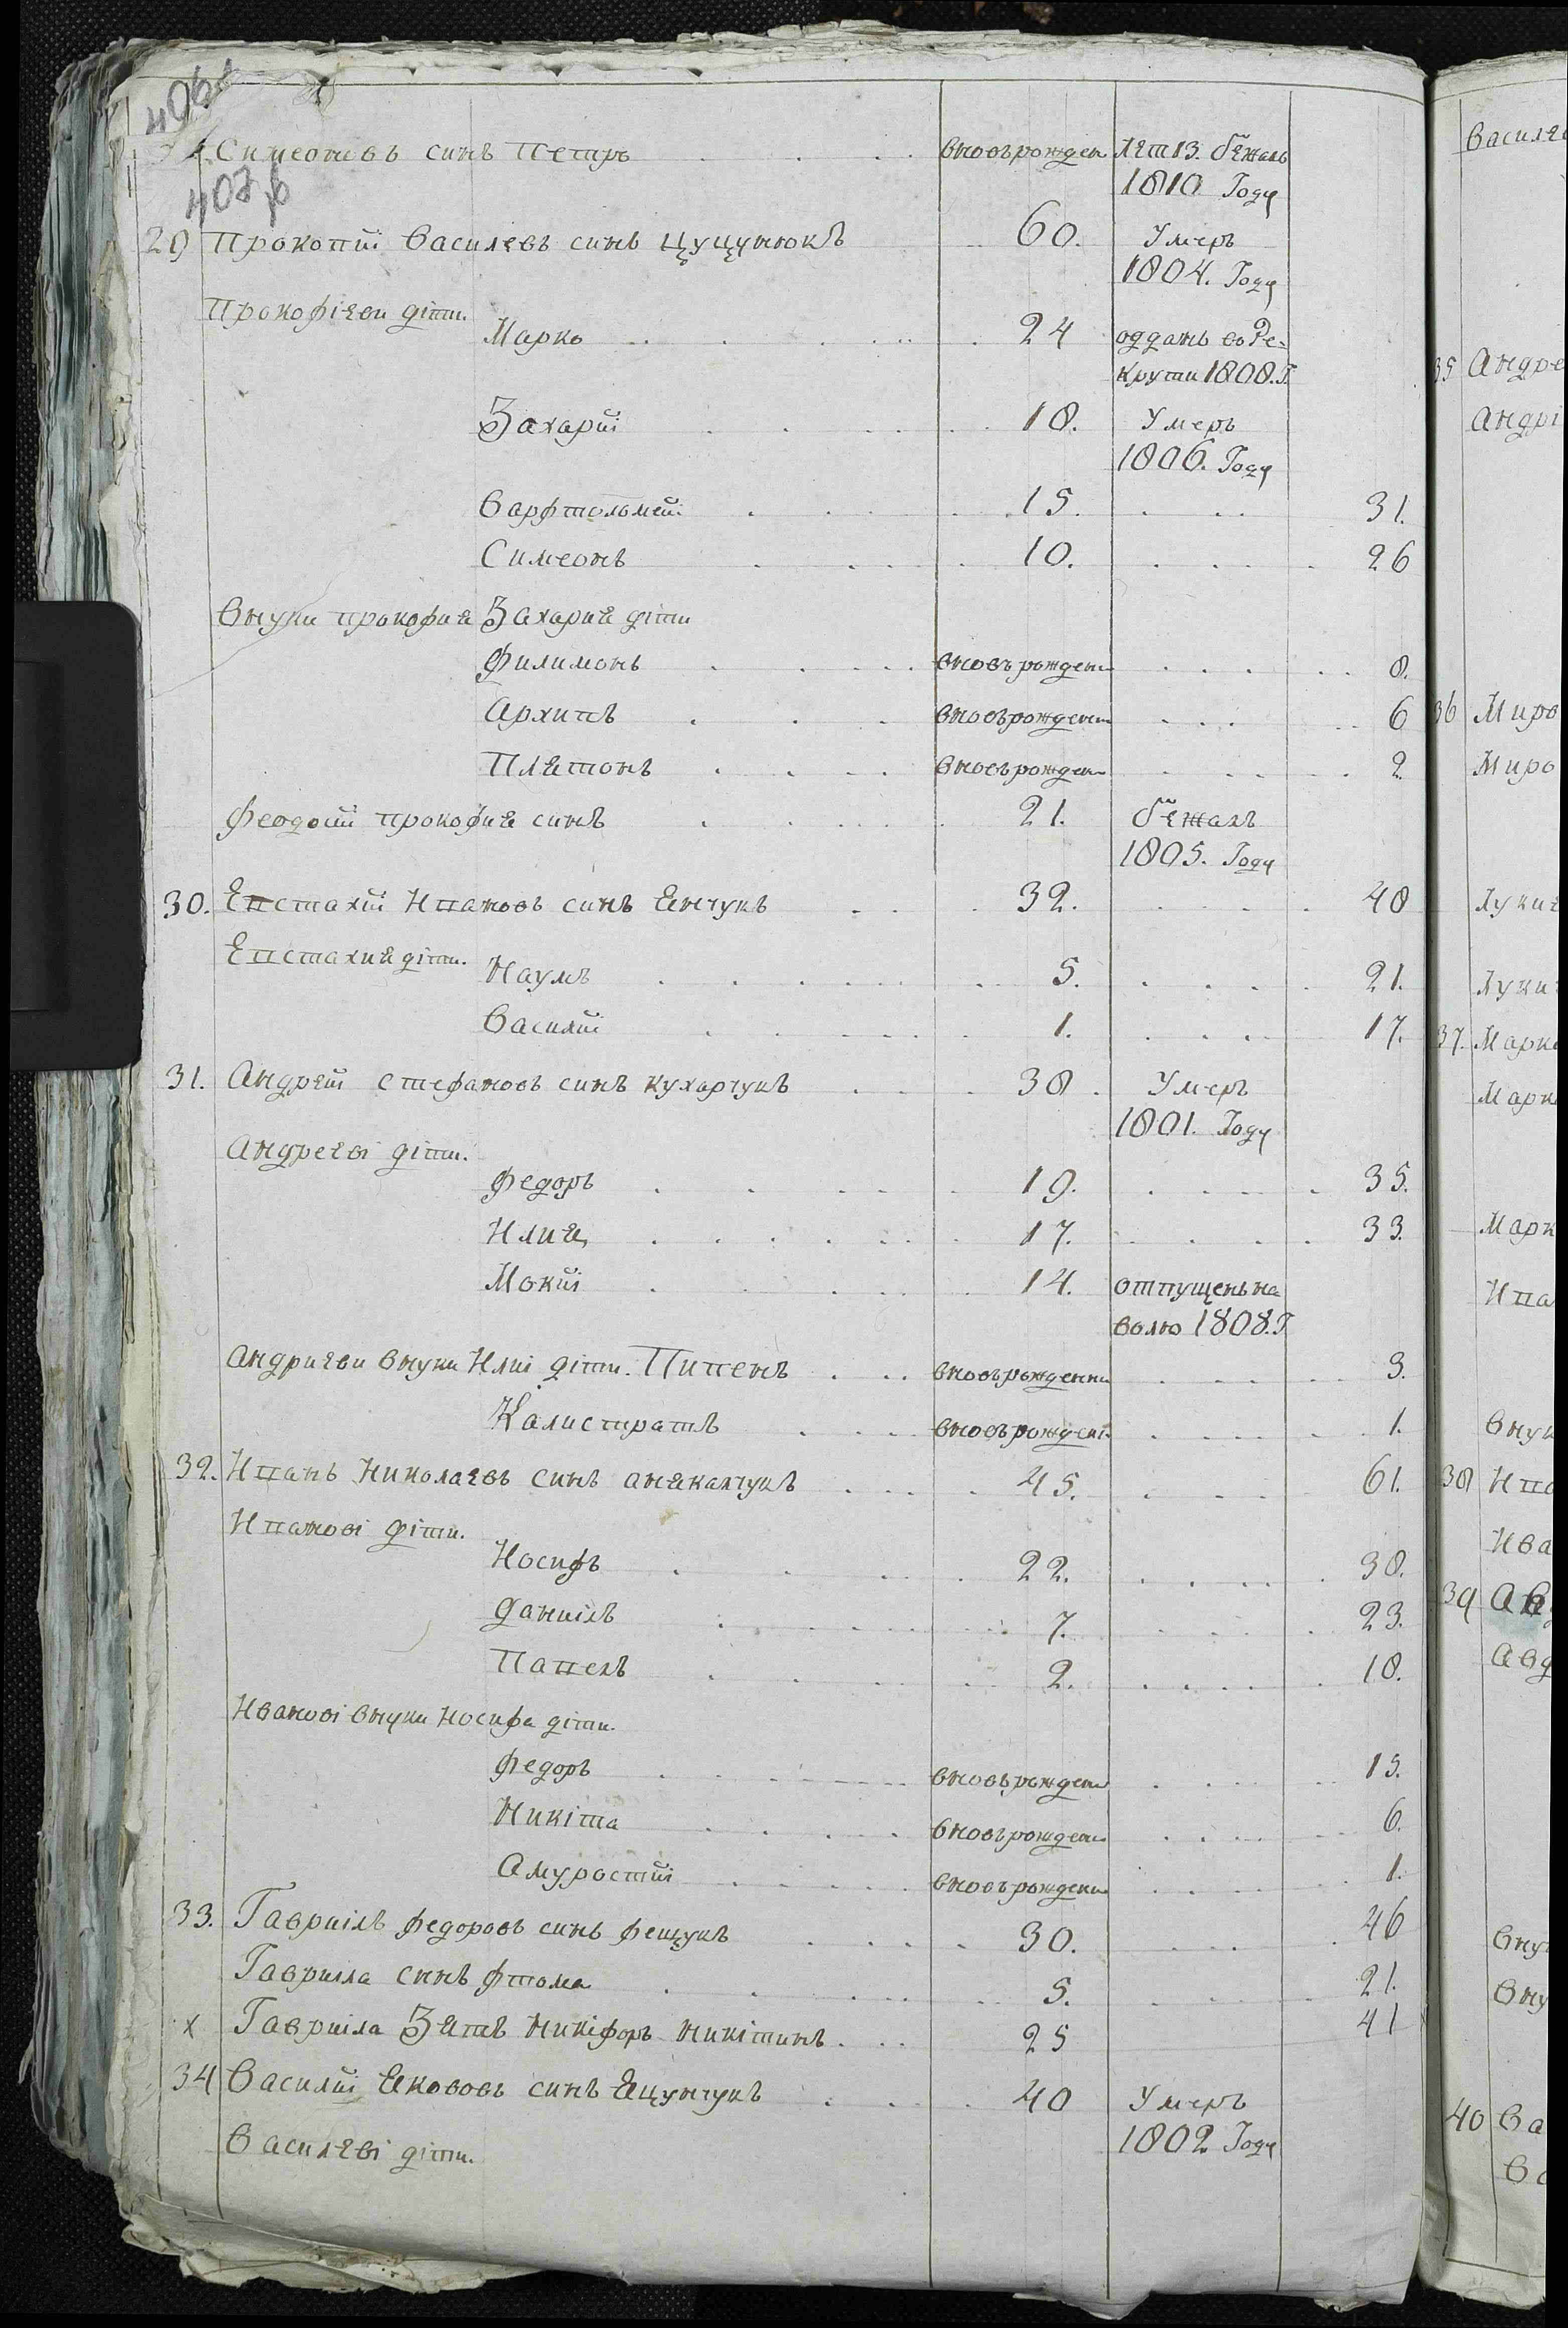 406
407
Симеоновъ синъ Петръ вновърожден Лет 13. бѣжалъ
1810 Году
29 Прокопій Василевъ синъ Цуцунюкъ 60. Умеръ
1804. Году
Прокофіеви діти.
Марко 24 отданъ во Ре-
крути 1808. Г.
Захарій 18. Умеръ
1806. Году
Варфтоломей 15. 31.
Симеонъ 10. 26
Внуки Прокофия Захария діти
Филимонъ вновърожден 8.
Архипъ вновърожден 6
Платонъ вновърожден 2
Феодосій Прокофия синъ 21. бѣжалъ
1805. Году
30. Евстахій Ивановъ синъ Янчукъ 32. 48
Евстахия діти.
Наумъ 5. 21.
Василій 1. 17.
31. Андрей Стефановъ синъ Кухарчукъ 38. Умеръ
1801. Году
Андрееві діти.
Федоръ 19. 35.
Илия 17. 33.
Мокій 14. отпущенъ на
волю 1808. Г
Андриеви внуки Иліи діти. Пименъ вновърожденни 3.
Калистратъ вновърожден. 1.
32. Иванъ Николаевъ синъ 45. 61.
Иванові діти.
Иосифъ 22. 38.
Даниілъ 7. 23.
Павелъ 2. 18.
Иванові внуки Иосифа діти.
Федоръ вновърожден 15.
Никіта вновърожден 6.
вновърожден 1.
33. Гавриілъ Федоровъ синъ Фещукъ 30. 46
Гавриіла синъ Фтома 5. 21.
х Гавриіла Зять Никіфоръ Никітинъ 25 41
34 Василій Якововъ синъ Яцунчукъ 40 Умеръ
1802 Году
Василеві діти.
Василе
35 Андре
Андрі
36 Миро
Миро
Луки
Луки
37. Марк
Марк
Марк
Ива
Внук
38 Ива
Ива
39 Ав
Авд
Вну
Вну
40 Ва
Ва